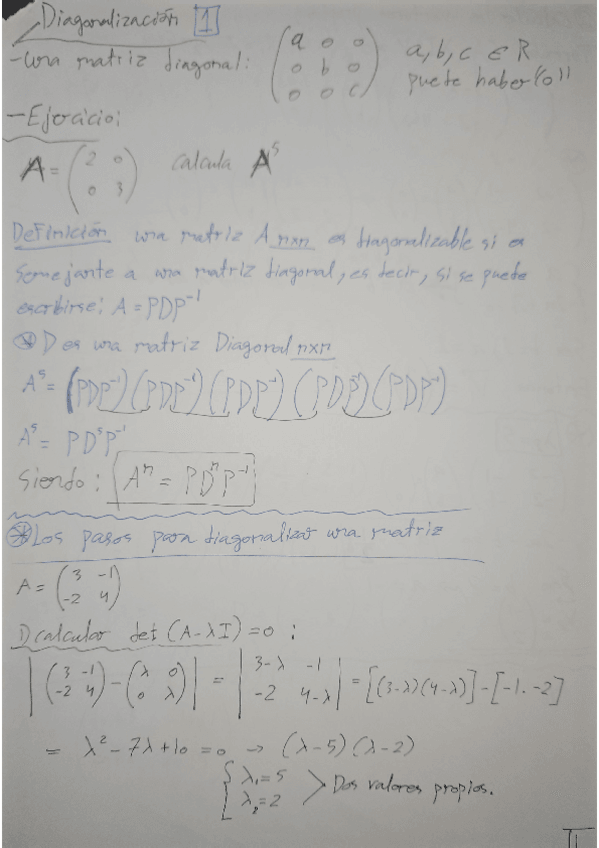 Diagonalización 1
-una matriz diagonal: (a 0 0 / 0 b 0 / 0 0 c) a, b, c ∈ R
puede haber "0"
-Ejercicio:
A = (2 0 / 0 3) calcula A⁵
Definición una matriz A nxn es diagonalizable si es
semejante a una matriz diagonal, es decir, si se puede
escribirse: A = PDP⁻¹
* D es una matriz Diagonal nxn
A⁵ = (PDP⁻¹)(PDP⁻¹)(PDP⁻¹)(PDP⁻¹)(PDP⁻¹)
A⁵ = PD⁵P⁻¹
Siendo: Aⁿ = PDⁿP⁻¹
* Los pasos para diagonalizar una matriz
A = (3 -1 / -2 4)
1) calcular det (A-λI) = 0 :
|(3 -1 / -2 4) - (λ 0 / 0 λ)| = |3-λ -1 / -2 4-λ| = [(3-λ)(4-λ)] - [-1. -2]
= λ² - 7λ + 10 = 0 → (λ-5)(λ-2)
{λ₁ = 5
λ₂ = 2 > Dos valores propios.